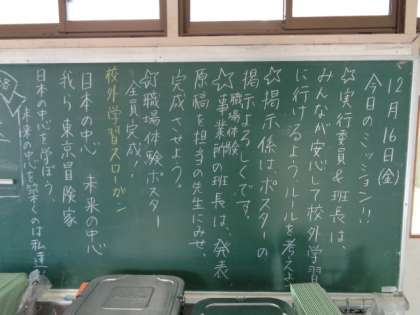 12月16日(金)
今日のミッション!!
☆実行委員&班長は、
みんなが安心して校外学習
に行けるよう、ルールを考えよ
☆掲示係は、ポスターの
掲示よろしくです。
職場体験
☆事業所の班長は、発表
原稿を担当の先生にみせ、
完成させよう。
☆職場体験ポスター
全員完成!
校外学習スローガン
日本の中心 未来の中心
我ら東京冒険家
日本の中心で学ぼう、
未来の中心を築くのは私達